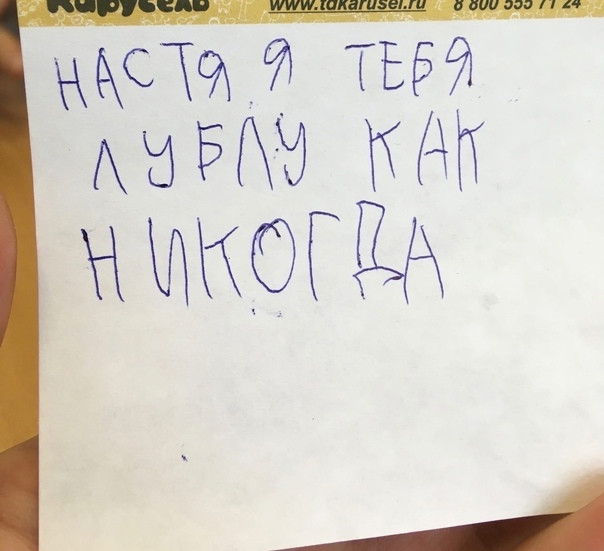 Карусель www.tdkarusel.ru 8 800 555 71 24
НАСТЯ Я ТЕБЯ
ЛУБЛУ КАК
НИКОГДА